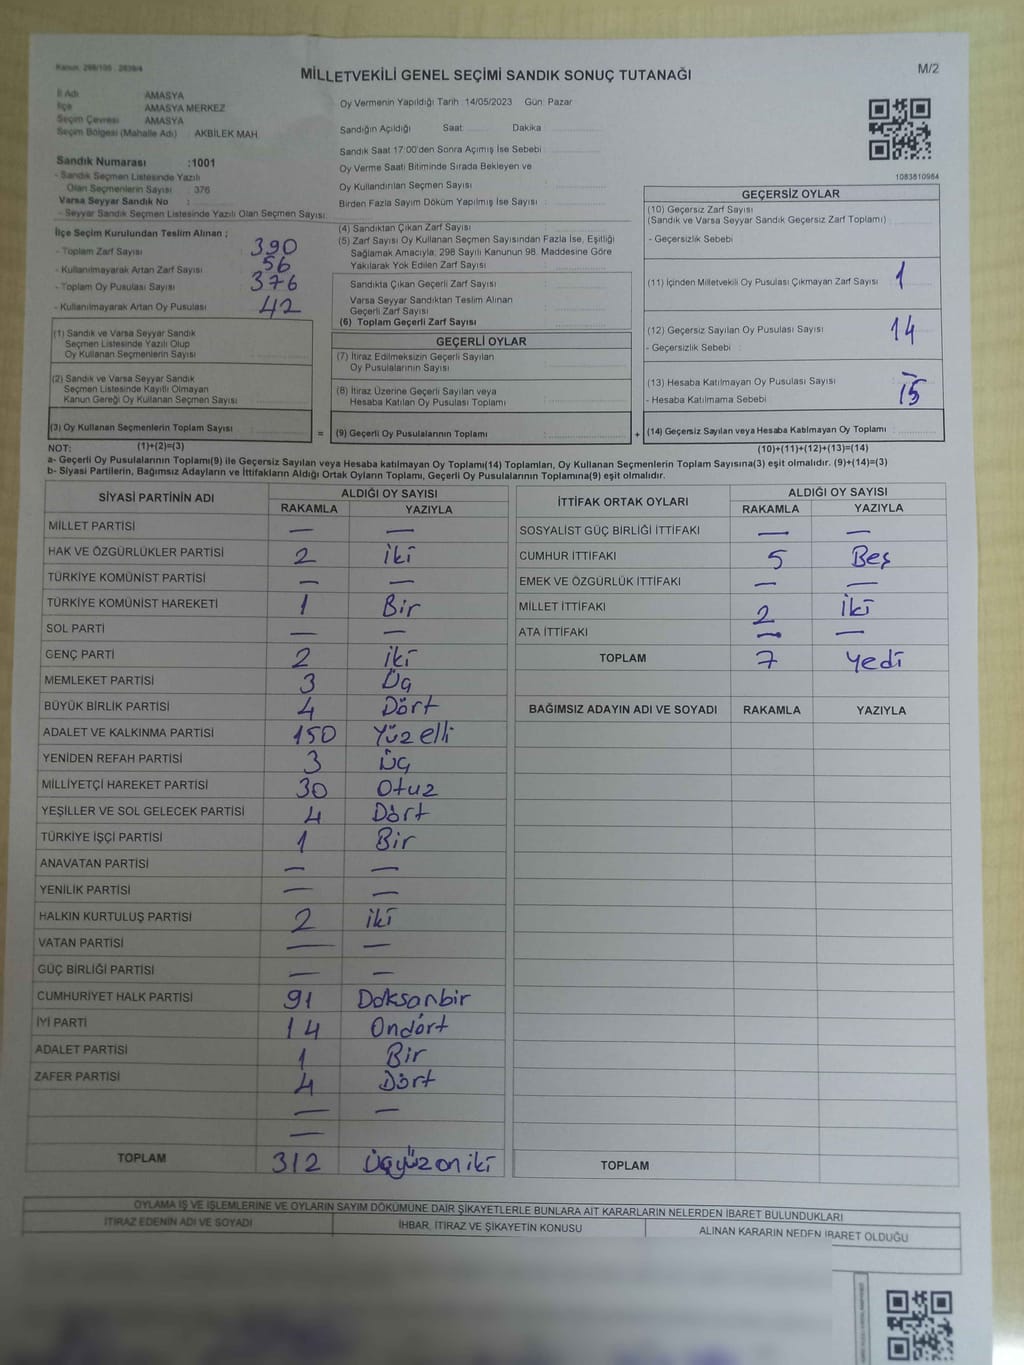 Kanun: 298/105 , 2839/4
MİLLETVEKİLİ GENEL SEÇİMİ SANDIK SONUÇ TUTANAĞI
M/2
İl Adı AMASYA
İlçe AMASYA MERKEZ
Seçim Çevresi AMASYA
Seçim Bölgesi (Mahalle Adı) AKBİLEK MAH.
Sandık Numarası :1001
- Sandık Seçmen Listesinde Yazılı
Olan Seçmenlerin Sayısı : 376
Varsa Seyyar Sandık No :
- Seyyar Sandık Seçmen Listesinde Yazılı Olan Seçmen Sayısı:
İlçe Seçim Kurulundan Teslim Alınan ;
- Toplam Zarf Sayısı 390
- Kullanılmayarak Artan Zarf Sayısı 56
- Toplam Oy Pusulası Sayısı 376
- Kullanılmayarak Artan Oy Pusulası 42
(1) Sandık ve Varsa Seyyar Sandık
Seçmen Listesinde Yazılı Olup
Oy Kullanan Seçmenlerin Sayısı :
(2) Sandık ve Varsa Seyyar Sandık
Seçmen Listesinde Kayıtlı Olmayan
Kanun Gereği Oy Kullanan Seçmen Sayısı :
(3) Oy Kullanan Seçmenlerin Toplam Sayısı :
Oy Vermenin Yapıldığı Tarih :14/05/2023 Gün: Pazar
Sandığın Açıldığı Saat: Dakika
Sandık Saat 17:00'den Sonra Açımış İse Sebebi :
Oy Verme Saati Bitiminde Sırada Bekleyen ve
Oy Kullandırılan Seçmen Sayısı :
Birden Fazla Sayım Döküm Yapılmış İse Sayısı :
(4) Sandıktan Çıkan Zarf Sayısı :
(5) Zarf Sayısı Oy Kullanan Seçmen Sayısından Fazla İse, Eşitliği
Sağlamak Amacıyla, 298 Sayılı Kanunun 98. Maddesine Göre
Yakılarak Yok Edilen Zarf Sayısı :
Sandıkta Çıkan Geçerli Zarf Sayısı :
Varsa Seyyar Sandıktan Teslim Alınan
Geçerli Zarf Sayısı :
(6) Toplam Geçerli Zarf Sayısı :
GEÇERLİ OYLAR
(7) İtiraz Edilmeksizin Geçerli Sayılan
Oy Pusulalarının Sayısı :
(8) İtiraz Üzerine Geçerli Sayılan veya
Hesaba Katılan Oy Pusulası Toplamı :
= (9) Geçerli Oy Pusulalarının Toplamı :
1083810984
GEÇERSİZ OYLAR
(10) Geçersiz Zarf Sayısı
(Sandık ve Varsa Seyyar Sandık Geçersiz Zarf Toplamı) :
- Geçersizlik Sebebi :
(11) İçinden Milletvekili Oy Pusulası Çıkmayan Zarf Sayısı : 1
(12) Geçersiz Sayılan Oy Pusulası Sayısı : 14
- Geçersizlik Sebebi :
(13) Hesaba Katılmayan Oy Pusulası Sayısı : —
- Hesaba Katılmama Sebebi : 15
+ (14) Geçersiz Sayılan veya Hesaba Katılmayan Oy Toplamı :
NOT: (1)+(2)=(3) (10)+(11)+(12)+(13)=(14)
a- Geçerli Oy Pusulalarının Toplamı(9) ile Geçersiz Sayılan veya Hesaba katılmayan Oy Toplamı(14) Toplamları, Oy Kullanan Seçmenlerin Toplam Sayısına(3) eşit olmalıdır. (9)+(14)=(3)
b- Siyasi Partilerin, Bağımsız Adayların ve İttifakların Aldığı Ortak Oyların Toplamı, Geçerli Oy Pusulalarının Toplamına(9) eşit olmalıdır.
SİYASİ PARTİNİN ADI ALDIĞI OY SAYISI
RAKAMLA YAZIYLA
MİLLET PARTİSİ — —
HAK VE ÖZGÜRLÜKLER PARTİSİ 2 iki
TÜRKİYE KOMÜNİST PARTİSİ — —
TÜRKİYE KOMÜNİST HAREKETİ 1 Bir
SOL PARTİ — —
GENÇ PARTİ 2 iki
MEMLEKET PARTİSİ 3 Üç
BÜYÜK BİRLİK PARTİSİ 4 Dört
ADALET VE KALKINMA PARTİSİ 150 Yüzelli
YENİDEN REFAH PARTİSİ 3 Üç
MİLLİYETÇİ HAREKET PARTİSİ 30 Otuz
YEŞİLLER VE SOL GELECEK PARTİSİ 4 Dört
TÜRKİYE İŞÇİ PARTİSİ 1 Bir
ANAVATAN PARTİSİ — —
YENİLİK PARTİSİ — —
HALKIN KURTULUŞ PARTİSİ 2 iki
VATAN PARTİSİ — —
GÜÇ BİRLİĞİ PARTİSİ — —
CUMHURİYET HALK PARTİSİ 91 Doksanbir
İYİ PARTİ 14 Ondört
ADALET PARTİSİ 1 Bir
ZAFER PARTİSİ 4 Dört
— —
—
TOPLAM 312 Üçyüzoniki
İTTİFAK ORTAK OYLARI ALDIĞI OY SAYISI
RAKAMLA YAZIYLA
SOSYALİST GÜÇ BİRLİĞİ İTTİFAKI — —
CUMHUR İTTİFAKI 5 Beş
EMEK VE ÖZGÜRLÜK İTTİFAKI — —
MİLLET İTTİFAKI 2 İki
ATA İTTİFAKI — —
TOPLAM 7 Yedi
BAĞIMSIZ ADAYIN ADI VE SOYADI RAKAMLA YAZIYLA
TOPLAM
OYLAMA İŞ VE İŞLEMLERİNE VE OYLARIN SAYIM DÖKÜMÜNE DAİR ŞİKAYETLERLE BUNLARA AİT KARARLARIN NELERDEN İBARET BULUNDUKLARI
İTİRAZ EDENİN ADI VE SOYADI İHBAR, İTİRAZ VE ŞİKAYETİN KONUSU ALINAN KARARIN NEDEN İBARET OLDUĞU